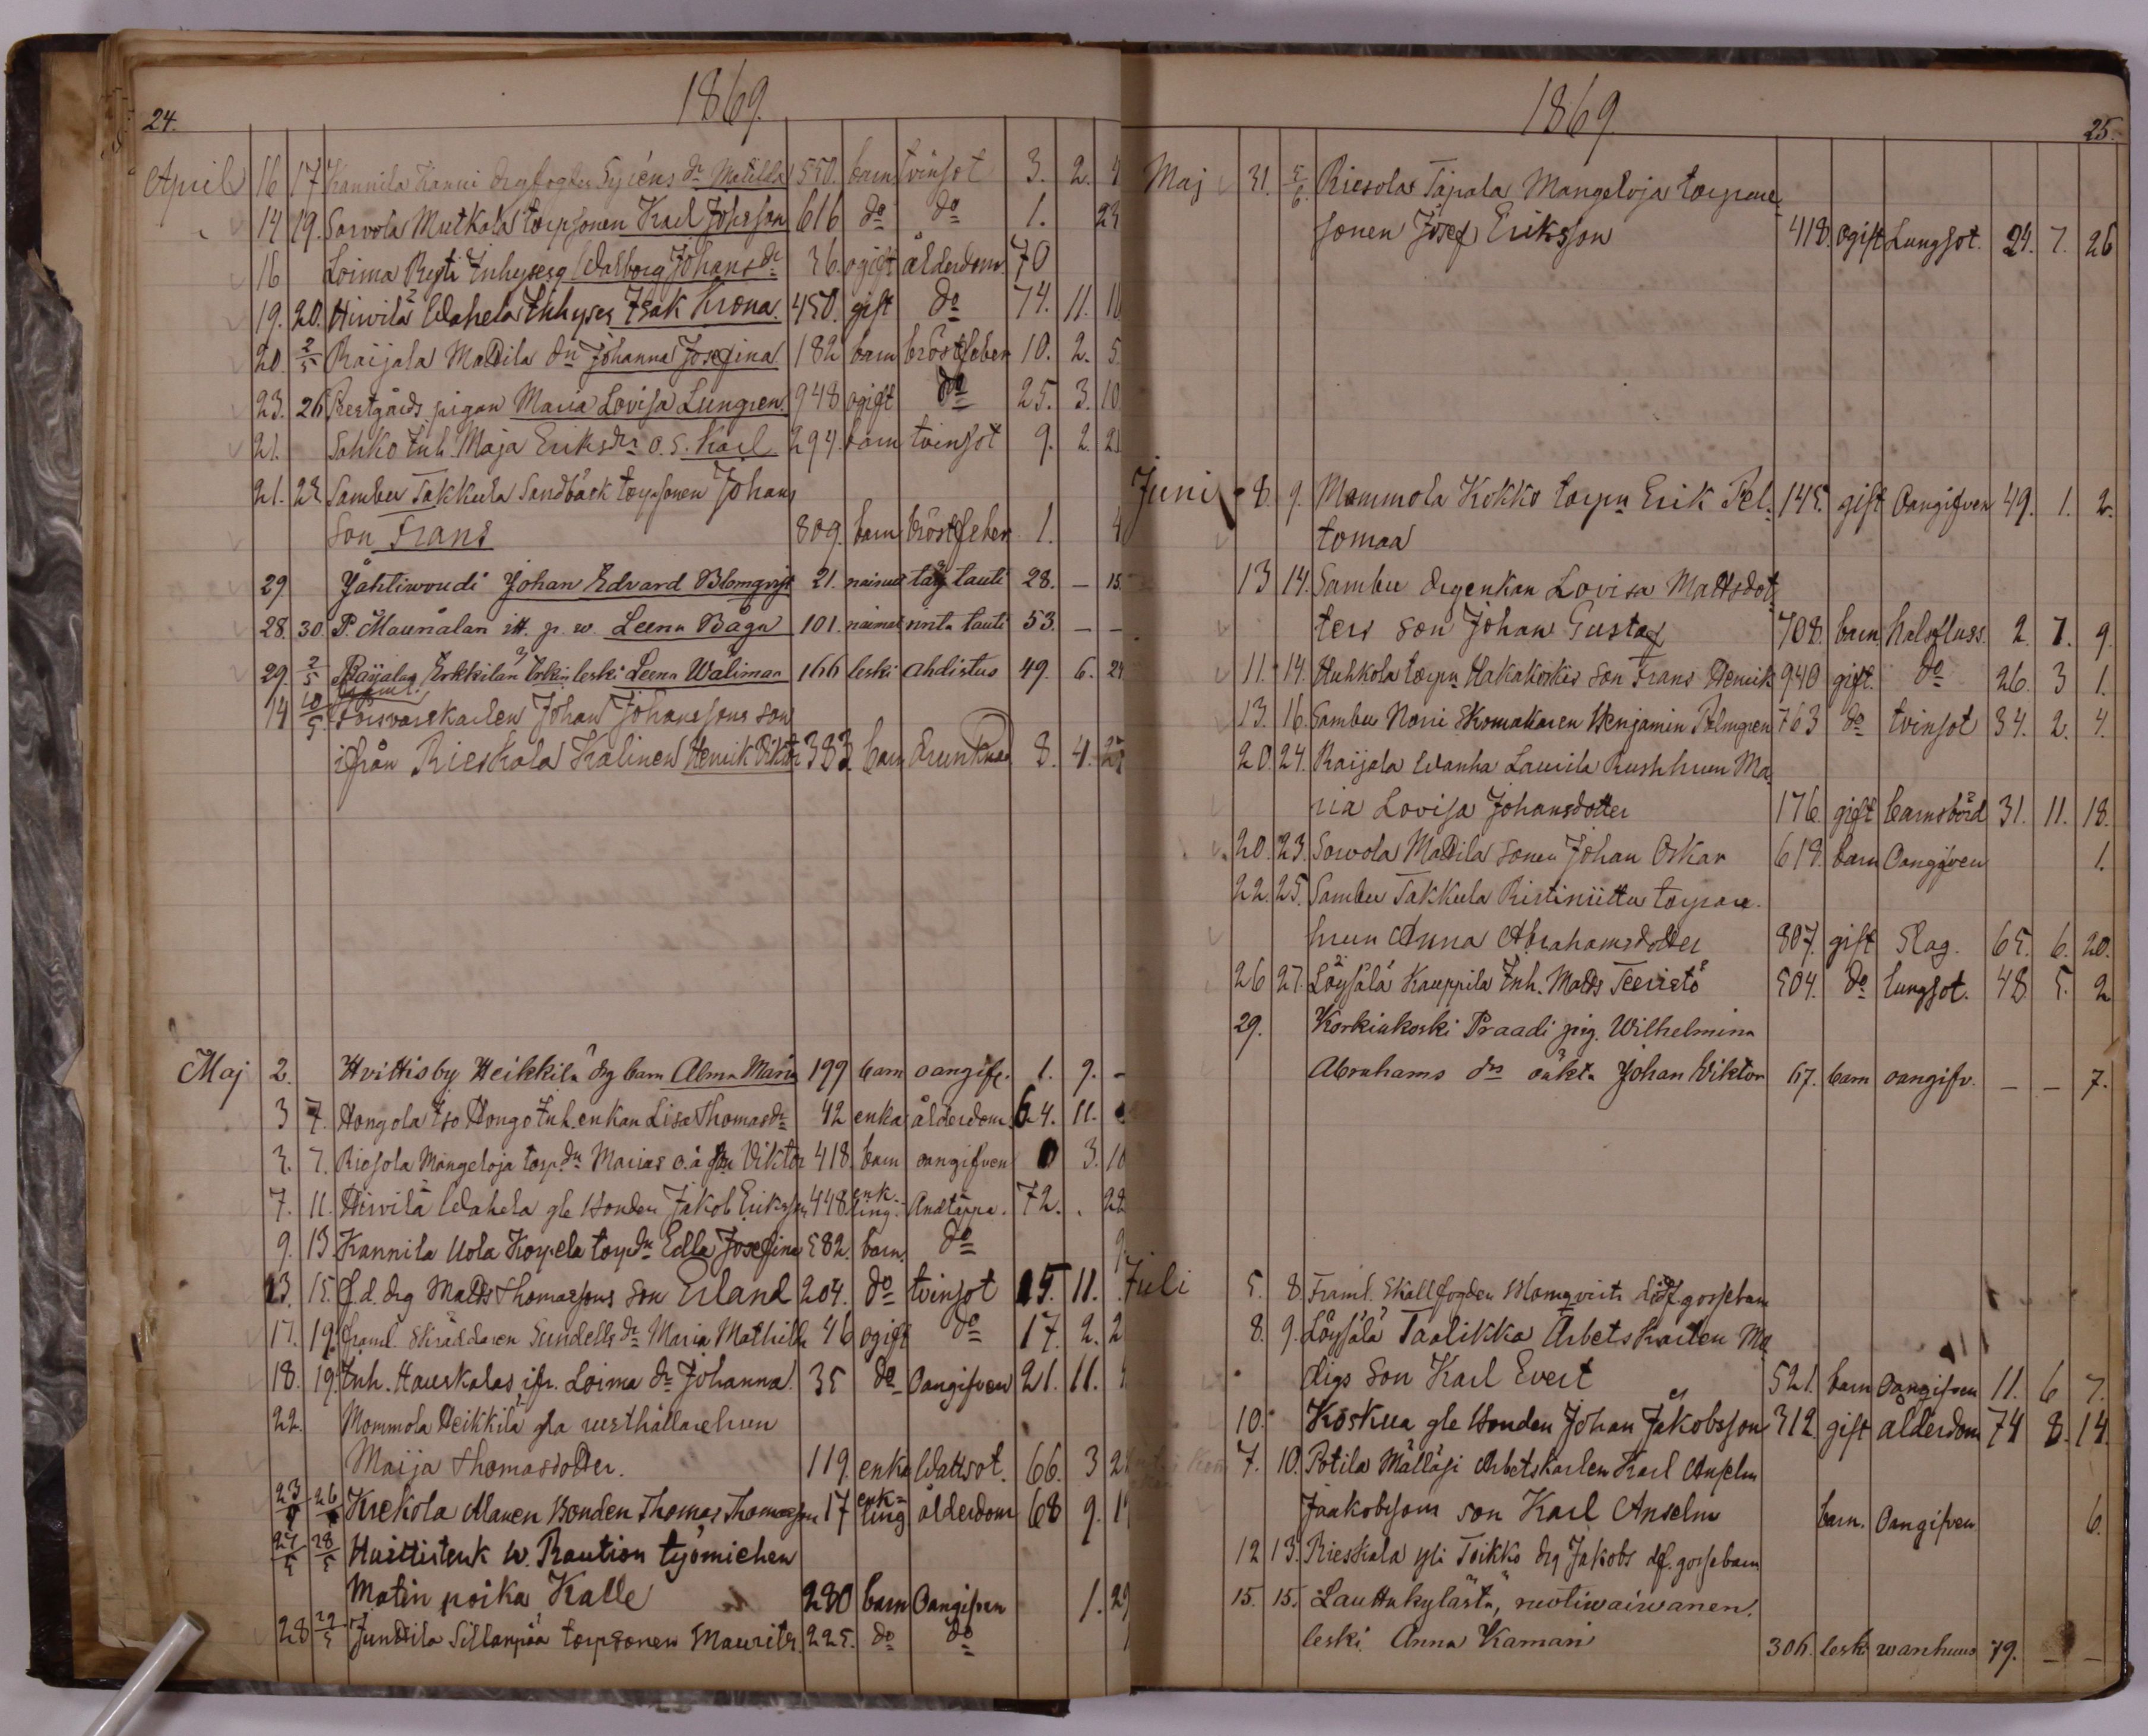 24.
1869.
April 16 17 Kannila Hanni drgfogden Syréns dr Matilda 550. barn tvinsot 3. 2. 4
14 19. Sorvola Mutkala torpsonen Karl Johsson 616 do do 1. 23
16 Loima Risti Inhyserg Walborg Johansdr 36. ogift ålderdom 70
19. 20. Hiwilä Wahela Inhyses Isak Krona. 450. gift do 74. 11. 10
20. 2/5 Raijala Mattila dn Johanna Josefina 182 barn bröstfeber 10. 2. 5
23. 26 Prestgårds pigan Maria Lovisa Lungren. 948 ogift do 25. 3. 10
21. Sahko Inh. Maja Eriksdrs o. s. Karl 294. barn tvinsot 9. 2. 21
21. 23 Sambu Takkula Sandbäck torpsonen Johans
son Frans 809. barn bröstfeber 1. 4
29 Jahtiwoudi Johan Edvard Blomqvist 21. nainut tauti 28. – 15.
28. 30 P. Maunalan itt. p. w. Leena Båga 101. nainut rinta tauti 53. – –
29. 2/5 Raijalan Erkkilän leski Leena Waliman 166 leski Ahdistus 49. 6. 24
14 10/5 Försvarskarlen Johan Johanssons son
ifrån Rieskala Kalinen Henrik Viktor 383. barn drunknad 8. 4. 27
Maj 2. Hvittisby Heikkilä drg barn Alma Maria 199 barn oangifv. 1. 9. –
3 7. Hongola Iso Hongo Inh. enkan Lisa Thomasdr 42 enka ålderdom 64. 11.
3. 7. Riesola Mangeloja torp. dn Marias o. ä son Viktor 418. barn oangifven 0 3. 10
7. 11. Hiwilä Wahela gle Bonden Jakob Eriksson 448. enk-ling. Andtäppa. 72. . 22
9. 13. Kannila Uola Korpela torpdn Edla Josefina 582. barn. do 9.
13. 15. f. d. drg Matts Thomassons son Erland 204. do tvinsot 15. 11.
17. 19. Framl. Skräddaren Sundells dr Maria Mathilda 46 ogift do 17. 2. 2
18. 19. Inh. Hauskalas, ifr. Loima dr Johanna. 35 do Oangifven 21. 11.
22. Mommola Heikkilä gla rusthållarehun
Maija Thomasdotter. 119. enka Wattsot. 66. 3 2
23 26 Krekola Alanen Bonden Thomas Thomasson 17 enk-ling ålderdom 68 9. 1
27/5 28/5 Huittistenk W. Raution työmiehen
Matin poika Kalle 280 barn Oangifven 1. 29
28 29/5 Junttila Sillanpää torpsonen Maurits. 225. do do

1869.
25.
Maj 31. 5/6. Riesola Tapala Mangeloja torpare
sonen Josef Eriksson 418. ogift Lungsot. 24. 7. 26
Juni 8. 9. Mommola Kokko torpn Erik Pel- 145. gift Oangifven 49. 1. 2.
tomaa
13 14. Sambu drgenkan Lovisa Mattsdot-
ters son Johan Gustaf 708. barn halsfluss. 2. 7. 9.
11. 14. Huhkola torpn Hakakoskis son Frans Henrik 940 gift. do 26. 3 1.
13. 16. Sambu Norri Skomakaren Benjamin Palmgren 763 do tvinsot 34. 2. 4.
20. 24. Raijala Wanha Laurila Rushhun Ma-
ria Lovisa Johansdotter 176. gift barnsbörd 31. 11. 18.
20. 23. Sorvola Mattila sonen Johan Oskar 618. barn Oangifven 1.
22. 25. Sambu Takkula Ristiniittu torpare
hrun Anna Abrahamsdotter 807. gift Slag. 65. 6. 20.
26 27. Löysälä Kauppila Inh. Matts Teeristö 504. do lungsot. 48 5. 2
29. Korkiakoski Praadi pig. Wilhelmina
Abrahams drs oäkta Johan Wiktor 67. barn oangifv. – – 7.
Juli 5. 8. Framl. Skallfogden Blomqvists dödf. gossebarn
8. 9. Löysälä Taalikka Arbetskarlen Ma
digs son Karl Evert 521. barn Oangifven 11. 6 7.
10. Koskua gle Bonden Johan Jakobsson 312 gift ålderdom 74 8. 14.
7. 10. Potila Mälläsi Arbetskarlen Karl Anselm
Jaakobsons son Karl Anselm barn. Oangifven 6.
12 13. Rieskala yli Toikko drg Jakobs df. gossebarn
15. 15. Lauttakylästä, ruotiwaiwanen.
leski. Anna Kamari 306. leski wanhuus 79. – –